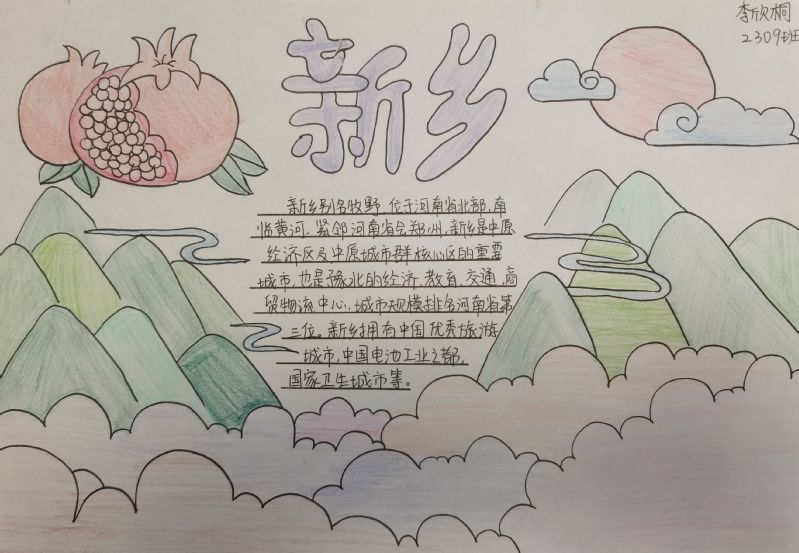 李欣桐
2309班
新乡
新乡别名牧野，位于河南省北部，南
临黄河，紧邻河南省会郑州，新乡是中原
经济区及中原城市群核心区的重要
城市，也是豫北的经济，教育，交通，商
贸物流中心，城市规模排名河南省第
三位。新乡拥有中国优秀旅游
城市，中国电池工业之都，
国家卫生城市等。